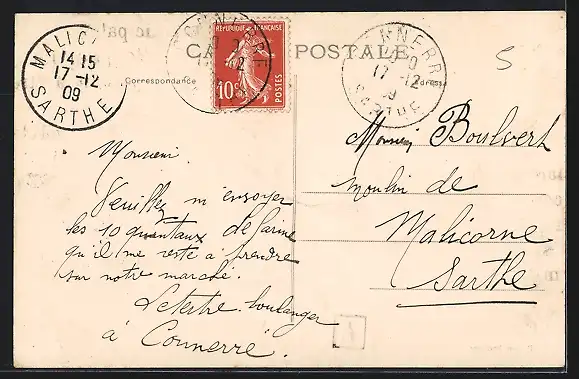 MALIC
14 15
17-12
09
SARTHE
CARTE POSTALE
Correspondance
Adresse
REPUBLIQUE FRANÇAISE
10c
POSTES
CONNERRÉ
17-12
09
SARTHE
5
Monsieur Boulvert
moulin de
Malicorne
Sarthe
Monsieur.
Veuillez m'envoyer
les 10 quintaux de farine
qu'il me reste à prendre
sur notre marché.
Letertre boulanger
à Connerré.